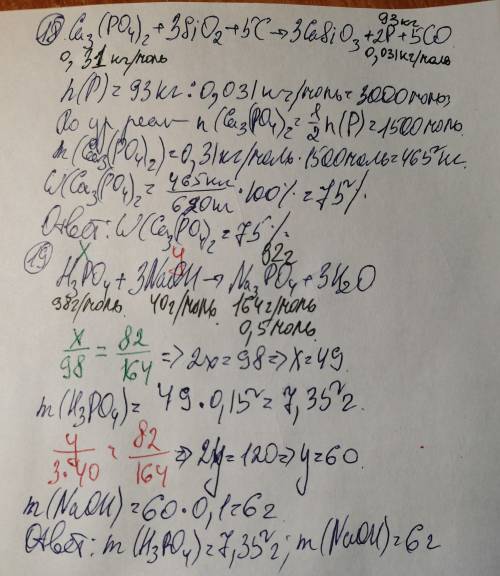 93кг
18) Ca₃(PO₄)₂ + 3SiO₂ + 5C → 3CaSiO₃ + 2P + 5CO
0,31 кг/моль 0,031 кг/моль
n(P) = 93кг : 0,031 кг/моль = 3000 моль
По ур. реак n(Ca₃(PO₄)₂ = 1/2 n(P) = 1500 моль.
m(Ca₃(PO₄)₂) = 0,31 кг/моль · 1500 моль = 465 кг.
W(Ca₃(PO₄)₂ = 465кг/620кг · 100% = 75%
Ответ: W(Ca₃(PO₄)₂ = 75%.
x y 82г
19) H₃PO₄ + 3NaOH → Na₃PO₄ + 3H₂O
98г/моль 40г/моль 164г/моль
0,5 моль
x/98 = 82/164 => 2x = 98 => x = 49
m(H₃PO₄) = 49 · 0,15 = 7,35 г.
y/3·40 = 82/164 => 2y = 120 => y = 60.
m(NaOH) = 60 · 0,1 = 6г
Ответ: m(H₃PO₄) = 7,35 г; m(NaOH) = 6г